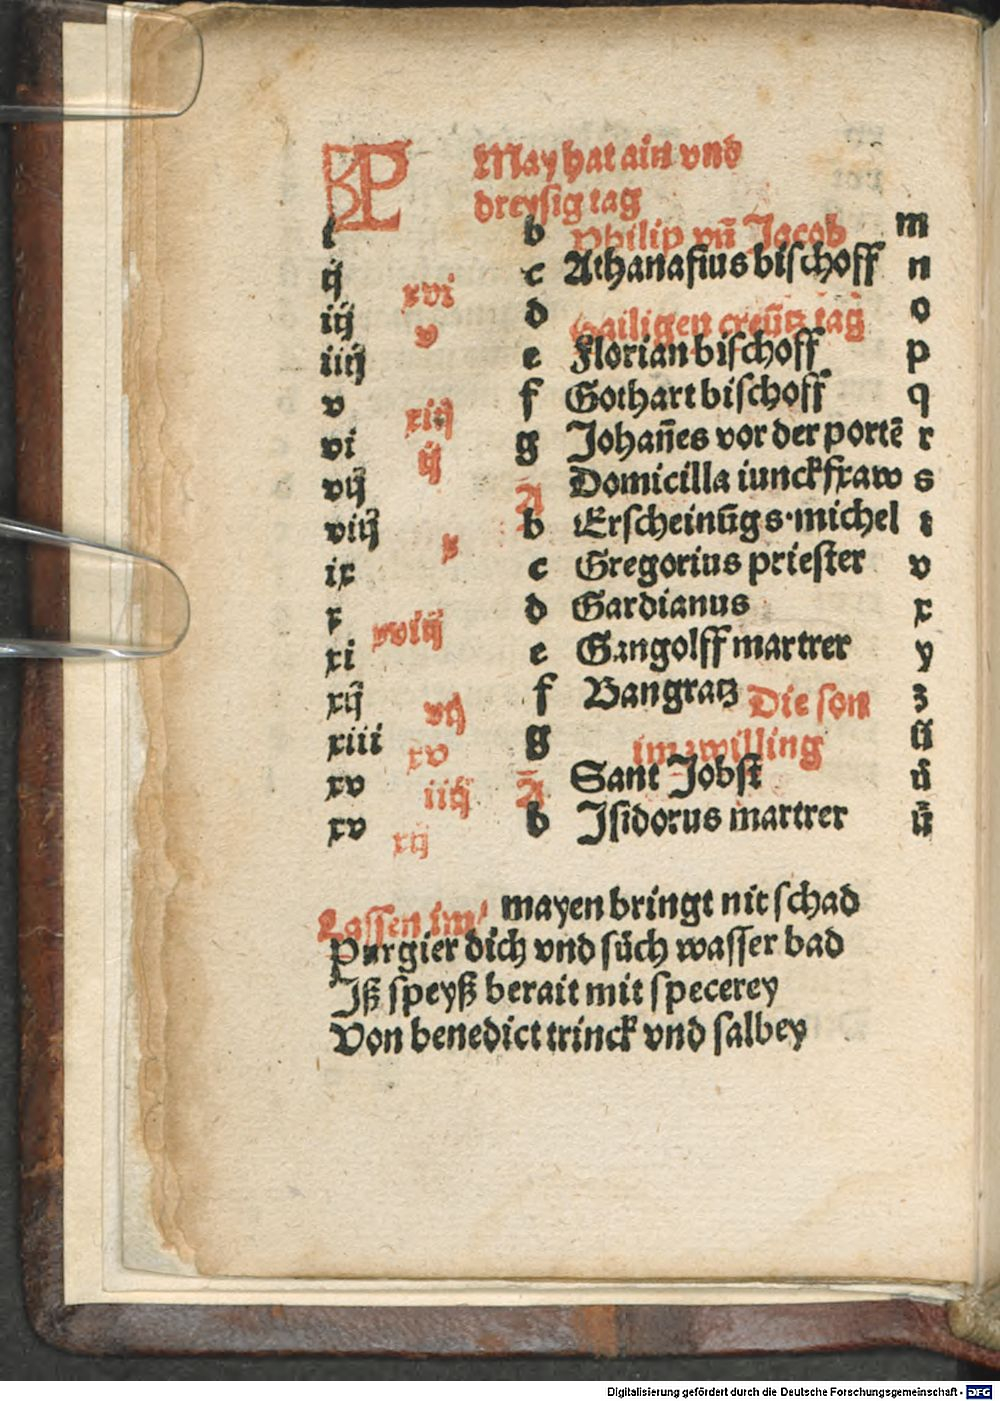 KL May hat ain vnd
dreysig tag
i b Philip vñ Jacob m
ij c Athanasius bischoff n
iij xvi d Hailigen creütz tag o
iiij v e Florian bischoff p
v f Gothart bischoff q
vi xiij g Johañes vor der portē r
vij ij A Domicilla iunckfraw s
viij b Erscheinūg s. michel t
ix x c Gregorius priester v
x d Gardianus x
xi xviij e Gangolff martrer y
xij vij f Bangratz Die son z
xiii xv g im zwilling
xv iiij A Sant Jobst
xv xij b Isidorus martrer
Lassen im mayen bringt nit schad
Purgier dich vnd sůch wasser bad
Iß speyß berait mit specerey
Von benedict trinck vnd salbey
Digitalisierung gefördert durch die Deutsche Forschungsgemeinschaft - DFG